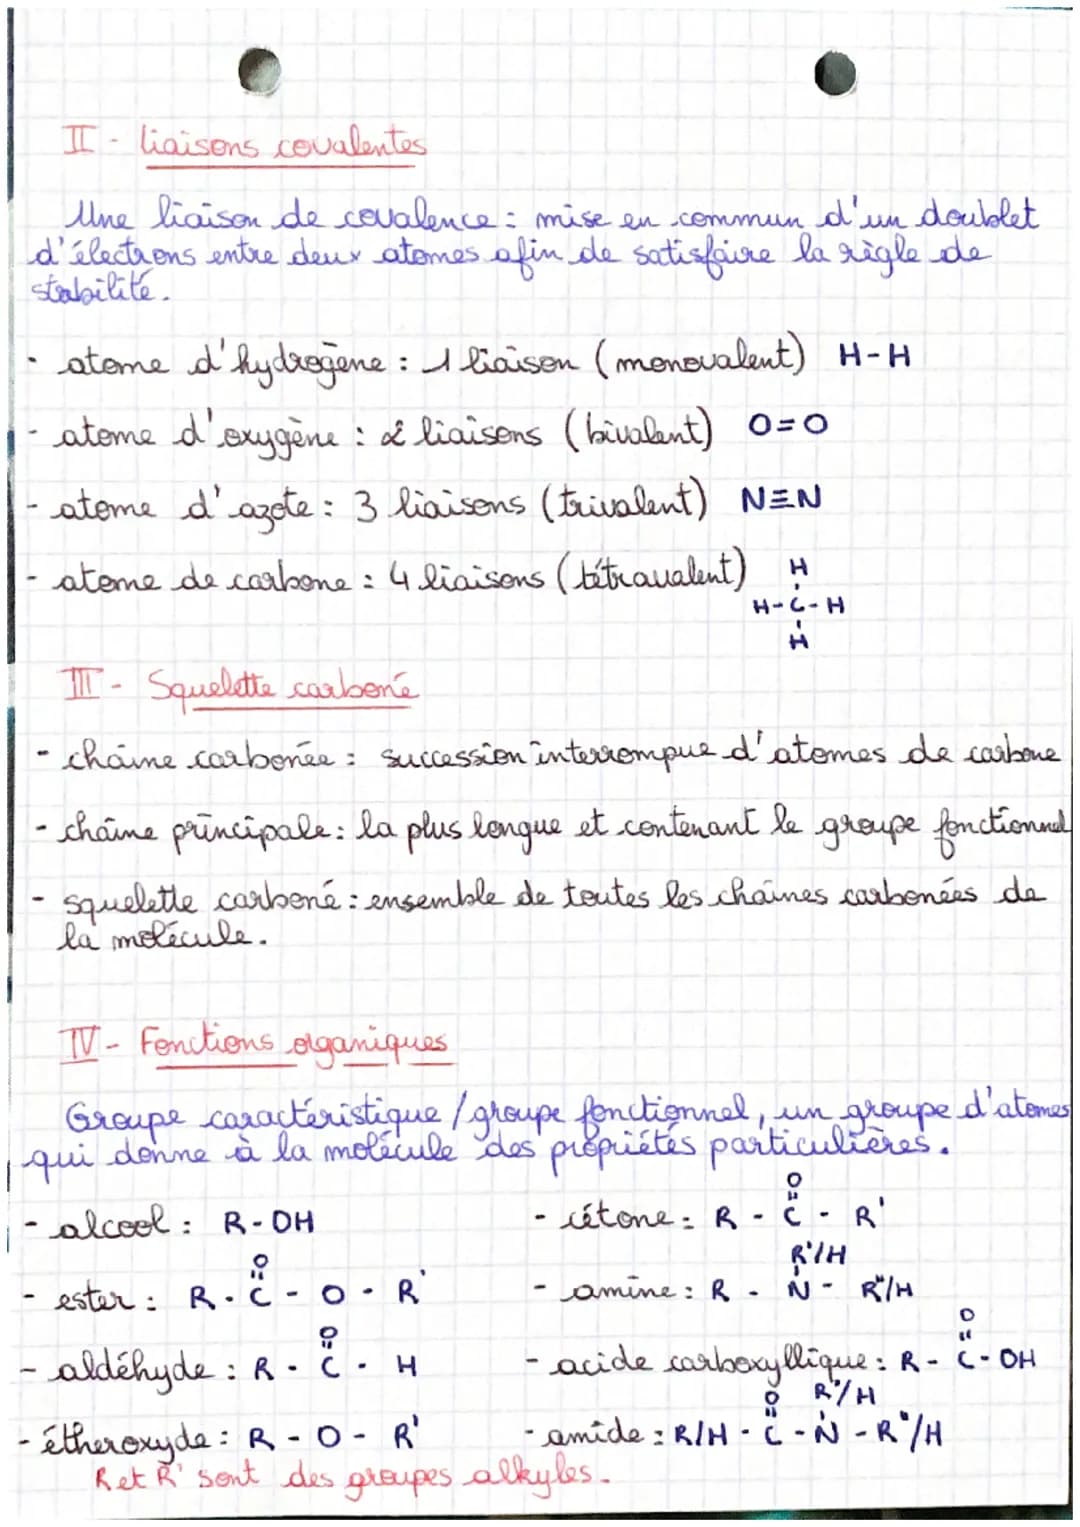 II - liaisons covalentes
Une liaison de covalence : mise en commun d'un doublet
d'électrons entre deux atomes afin de satisfaire la règle de
stabilité.
- atome d'hydrogène : 1 liaison (monovalent) H-H
- atome d'oxygène : 2 liaisons (bivalent) O=O
- atome d'azote : 3 liaisons (trivalent) N≡N
- atome de carbone : 4 liaisons (tétravalent) H
H-C-H
H
III - Squelette carboné
- chaîne carbonée : succession interrompue d'atomes de carbone
- chaîne principale : la plus longue et contenant le groupe fonctionnel
- squelette carboné : ensemble de toutes les chaînes carbonées de
la molécule.
IV - Fonctions organiques
Groupe caractéristique / groupe fonctionnel, un groupe d'atomes
qui donne à la molécule des propriétés particulières.
O
- alcool : R-OH - cétone : R - C - R'
O R'/H
- ester : R - C - O - R' - amine : R - N - R"/H
O O
- aldéhyde : R - C - H - acide carboxyllique : R - C - OH
O R'/H
- étheroxyde : R - O - R' - amide : R/H - C - N - R"/H
R et R' sont des groupes alkyles.